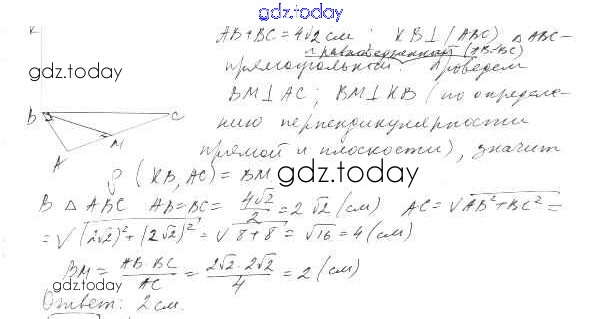 gdz.today
K
AB+BC=4√2 см ; KB⊥(ABC) △ABC–
и равнобедренный (AB=BC)
прямоугольный. Проведем
gdz.today
BM⊥AC; BM⊥KB (по определе-
B C
нию перпендикулярности
A M
прямой и плоскости), значит
ρ (KB, AC) = BM
gdz.today
В △ABC AB=BC= 4√2/2 = 2√2 (см) AC=√AB²+BC² =
=√(2√2)²+(2√2)² = √8+8 = √16 = 4 (см)
BM = AB·BC/AC = 2√2·2√2/4 = 2 (см)
gdz.today
Ответ: 2 см.